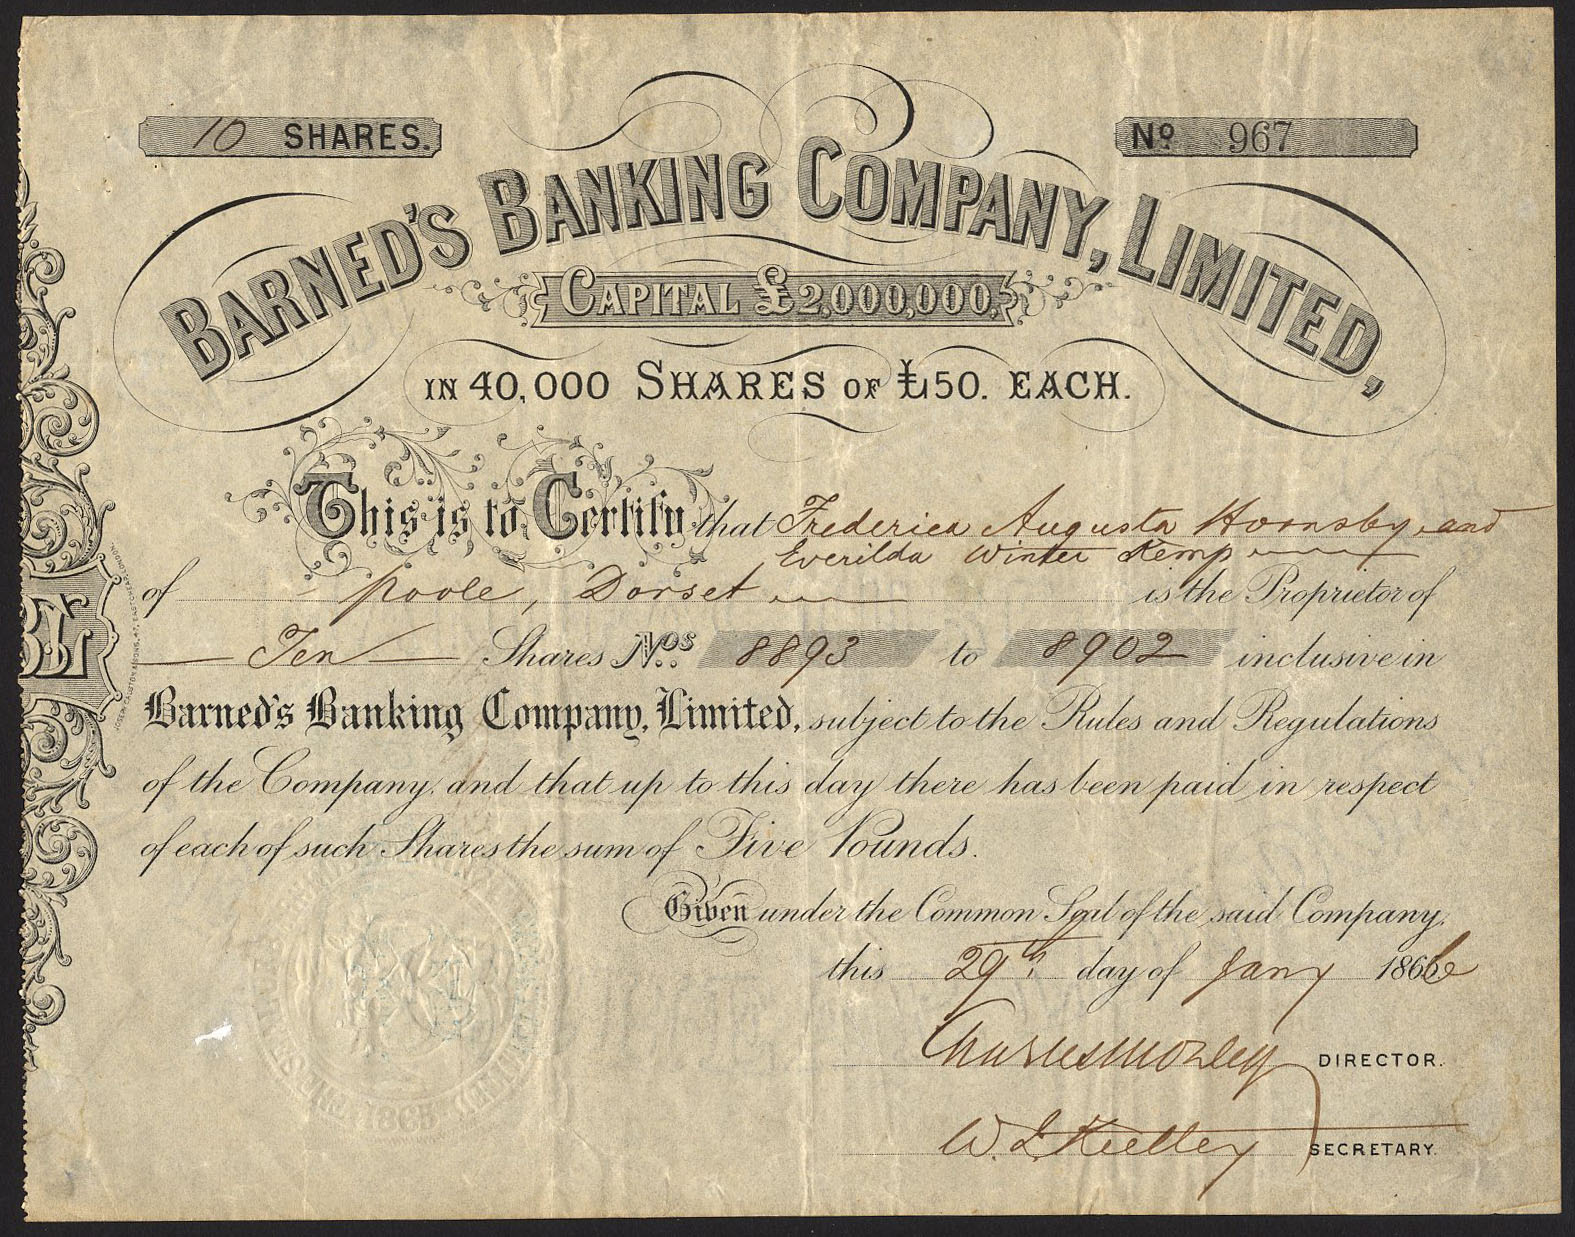 10 SHARES.
No 967
BARNED'S BANKING COMPANY, LIMITED,
CAPITAL £2,000,000.
IN 40,000 SHARES OF £50. EACH.
This is to Certify that Frederica Augusta Hornsby and
Everilda Winter Kemp
of Poole, Dorset is the Proprietor of
Ten Shares Nos. 8893 to 8902 inclusive in
Barned's Banking Company, Limited, subject to the Rules and Regulations
of the Company, and that up to this day there has been paid in respect
of each of such Shares the sum of Five Pounds.
Given under the Common Seal of the said Company,
this 29th day of Jany 1866
Charles Mozley DIRECTOR.
W. SECRETARY.
1865